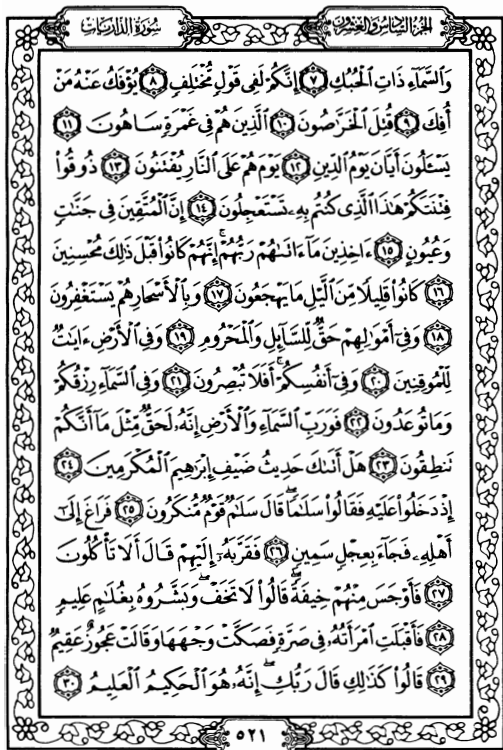 سورة الذاريات
الجزء السادس والعشرون
وَٱلسَّمَآءِ ذَاتِ ٱلْحُبُكِ ٧ إِنَّكُمْ لَفِى قَوْلٍ مُّخْتَلِفٍ ٨ يُؤْفَكُ عَنْهُ مَنْ
أُفِكَ ٩ قُتِلَ ٱلْخَرَّٰصُونَ ١٠ ٱلَّذِينَ هُمْ فِى غَمْرَةٍ سَاهُونَ ١١
يَسْـَٔلُونَ أَيَّانَ يَوْمُ ٱلدِّينِ ١٢ يَوْمَ هُمْ عَلَى ٱلنَّارِ يُفْتَنُونَ ١٣ ذُوقُوا۟
فِتْنَتَكُمْ هَٰذَا ٱلَّذِى كُنتُم بِهِۦ تَسْتَعْجِلُونَ ١٤ إِنَّ ٱلْمُتَّقِينَ فِى جَنَّٰتٍ
وَعُيُونٍ ١٥ ءَاخِذِينَ مَآ ءَاتَىٰهُمْ رَبُّهُمْ ۚ إِنَّهُمْ كَانُوا۟ قَبْلَ ذَٰلِكَ مُحْسِنِينَ
١٦ كَانُوا۟ قَلِيلًا مِّنَ ٱلَّيْلِ مَا يَهْجَعُونَ ١٧ وَبِٱلْأَسْحَارِ هُمْ يَسْتَغْفِرُونَ
١٨ وَفِىٓ أَمْوَٰلِهِمْ حَقٌّ لِّلسَّآئِلِ وَٱلْمَحْرُومِ ١٩ وَفِى ٱلْأَرْضِ ءَايَٰتٌ
لِّلْمُوقِنِينَ ٢٠ وَفِىٓ أَنفُسِكُمْ ۚ أَفَلَا تُبْصِرُونَ ٢١ وَفِى ٱلسَّمَآءِ رِزْقُكُمْ
وَمَا تُوعَدُونَ ٢٢ فَوَرَبِّ ٱلسَّمَآءِ وَٱلْأَرْضِ إِنَّهُۥ لَحَقٌّ مِّثْلَ مَآ أَنَّكُمْ
تَنطِقُونَ ٢٣ هَلْ أَتَىٰكَ حَدِيثُ ضَيْفِ إِبْرَٰهِيمَ ٱلْمُكْرَمِينَ ٢٤
إِذْ دَخَلُوا۟ عَلَيْهِ فَقَالُوا۟ سَلَٰمًا ۖ قَالَ سَلَٰمٌ قَوْمٌ مُّنكَرُونَ ٢٥ فَرَاغَ إِلَىٰٓ
أَهْلِهِۦ فَجَآءَ بِعِجْلٍ سَمِينٍ ٢٦ فَقَرَّبَهُۥٓ إِلَيْهِمْ قَالَ أَلَا تَأْكُلُونَ
٢٧ فَأَوْجَسَ مِنْهُمْ خِيفَةً ۖ قَالُوا۟ لَا تَخَفْ ۖ وَبَشَّرُوهُ بِغُلَٰمٍ عَلِيمٍ
٢٨ فَأَقْبَلَتِ ٱمْرَأَتُهُۥ فِى صَرَّةٍ فَصَكَّتْ وَجْهَهَا وَقَالَتْ عَجُوزٌ عَقِيمٌ
٢٩ قَالُوا۟ كَذَٰلِكِ قَالَ رَبُّكِ ۖ إِنَّهُۥ هُوَ ٱلْحَكِيمُ ٱلْعَلِيمُ ٣٠
٥٢١